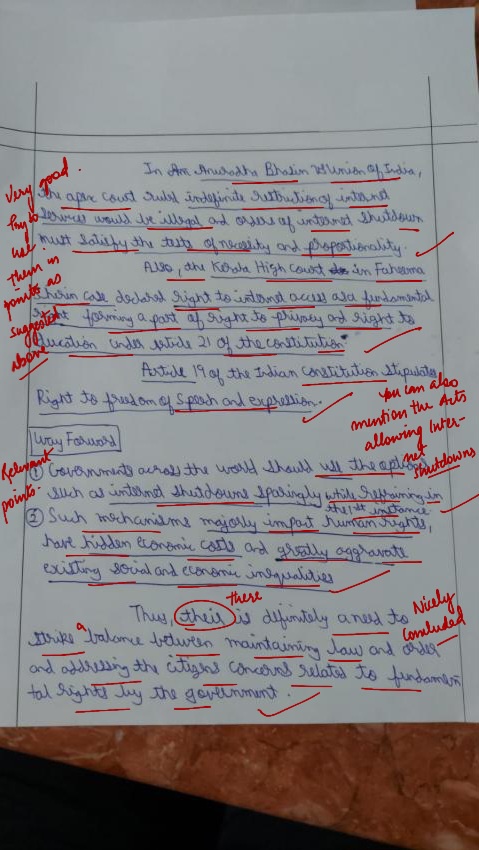 In Anuradha Bhasin vs Union of India,
the apex court ruled indefinite restriction of internet
services would be illegal and orders of internet shutdown
must satisfy the tests of necessity and proportionality.
Also, the Kerala High Court in Faheema
Shirin case declared right to internet access as a fundamental
right forming a part of right to privacy and right to
education under article 21 of the constitution
Article 19 of the Indian Constitution stipulates
Right to freedom of Speech and expression.
Very good.
Try to
use
them in
points as
suggested
above
You can also
mention the Acts
allowing Inter-
net
shutdowns
Way Forward
Relevant
points.
① Governments across the world should use the options
such as internet shutdowns sparingly while refraining in
the 1st instance.
② Such mechanisms majorly impact human rights,
have hidden economic costs and greatly aggravate
existing social and economic inequalities
there
Thus, their is definitely a need to
strike a balance between maintaining law and order
and addressing the citizens concerns related to fundamen
tal rights by the government.
Nicely
Concluded